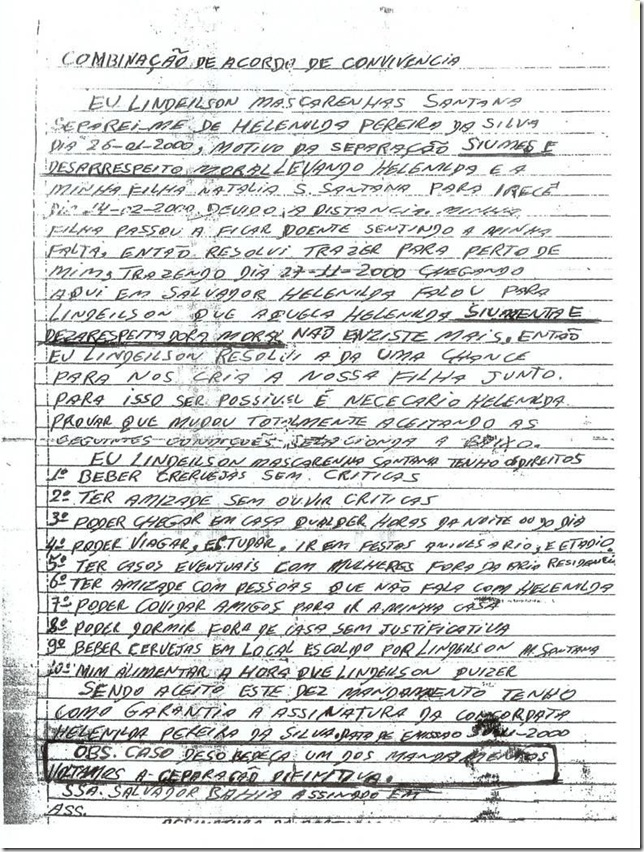 COMBINAÇÃO DE ACORDO DE CONVIVENCIA
EU LINDEILSON MASCARENHAS SANTANA
SEPAREI-ME DE HELENILDA PEREIRA DA SILVA
DIA 26-01-2000, MOTIVO DA SEPARAÇÃO SIUMES E
DESARRESPEITO MORAL LEVANDO HELENILDA E A
MINHA FILHA NATALIA S. SANTANA PARA IRECÊ
DIA 14-02-2000, DEVIDO A DISTANCIA. MINHA
FILHA PASSOU A FICAR DOENTE SENTINDO A MINHA
FALTA, ENTÃO RESOLVI TRAZER PARA PERTO DE
MIM, TRAZENDO DIA 27-11-2000 CHEGANDO
AQUI EM SALVADOR HELENILDA FALOU PARA
LINDEILSON QUE AQUELA HELENILDA SIUMENTA E
DEZARESPEITADORA MORAL NÃO ENZISTE MAIS. ENTÃO
EU LINDEILSON RESOLVI A DA UMA CHANCE
PARA NOS CRIA A NOSSA FILHA JUNTO.
PARA ISSO SER POSSIVEL É NECECARIO HELENILDA
PROVAR QUE MUDOU TOTALMENTE ACEITANDO AS
SEGUINTES A BAIXO.
EU LINDEILSON MASCARENHA SANTANA TENHO OS DIREITOS
1º BEBER CRERVEJAS SEM CRITICAS
2º TER AMIZADE SEM OUVIR CRITICAS
3º PODER CHEGAR EM CASA QUALQER HORAS DA NOITE OU DO DIA
4º PODER VIAGAR, ESTUDAR, IR EM FESTAS ANIVESARIO, E ETADIO.
5º TER CASOS EVENTUAIS COM MULHERES FORA DA ARIO RESIDANCIA
6º TER AMIZADE COM PESSOAS QUE NÃO FALA COM HELENILDA
7º PODER COVIDAR AMIGOS PARA IR A MINHA CASA
8º PODER DORMIR FORA DE CASA SEM JUSTIFICATIVA
9º BEBER CERVEJAS EM LOCAL ESCOLIDO POR LINDEILSON M. SANTANA
10º MIM ALIMENTAR A HORA QUE LINDEILSON QUIZER
SENDO ACEITO ESTE DEZ MANDAMENTO TENHO
COMO GARANTIA A ASSINATURA DA CONCORDATA
HELENILDA PEREIRA DA SILVA. DATA DE EMISSÃO -2000
OBS. CASO DESOBEDEÇA UM DOS MANDAMENTOS
VOLTAMOS A CEPARAÇÃO DIFINITIVA.
SSA. SALVADOR BAHIA ASSINADO EM
ASS.